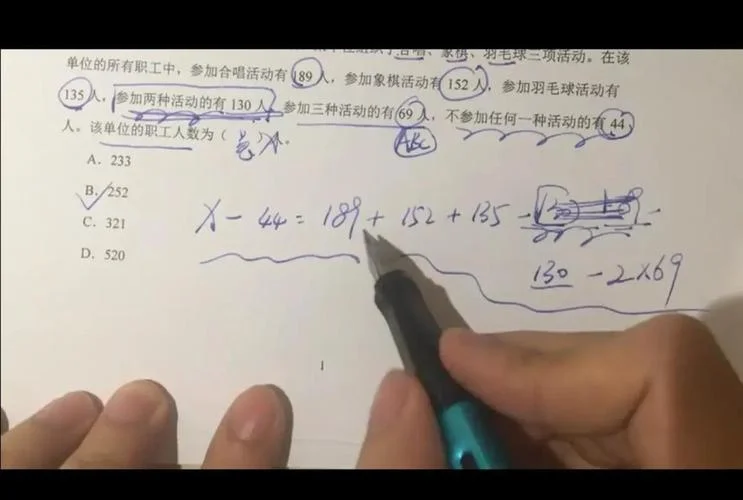 合唱、象棋、羽毛球三项活动。在该
单位的所有职工中，参加合唱活动有189人，参加象棋活动有152人，参加羽毛球活动有
135人，参加两种活动的有130人，参加三种活动的有69人，不参加任何一种活动的有44
人。该单位的职工人数为（总人）。
ABC
A. 233
B. 252
C. 321
D. 520
x - 44 = 189 + 152 + 135 -
130 - 2×69
1